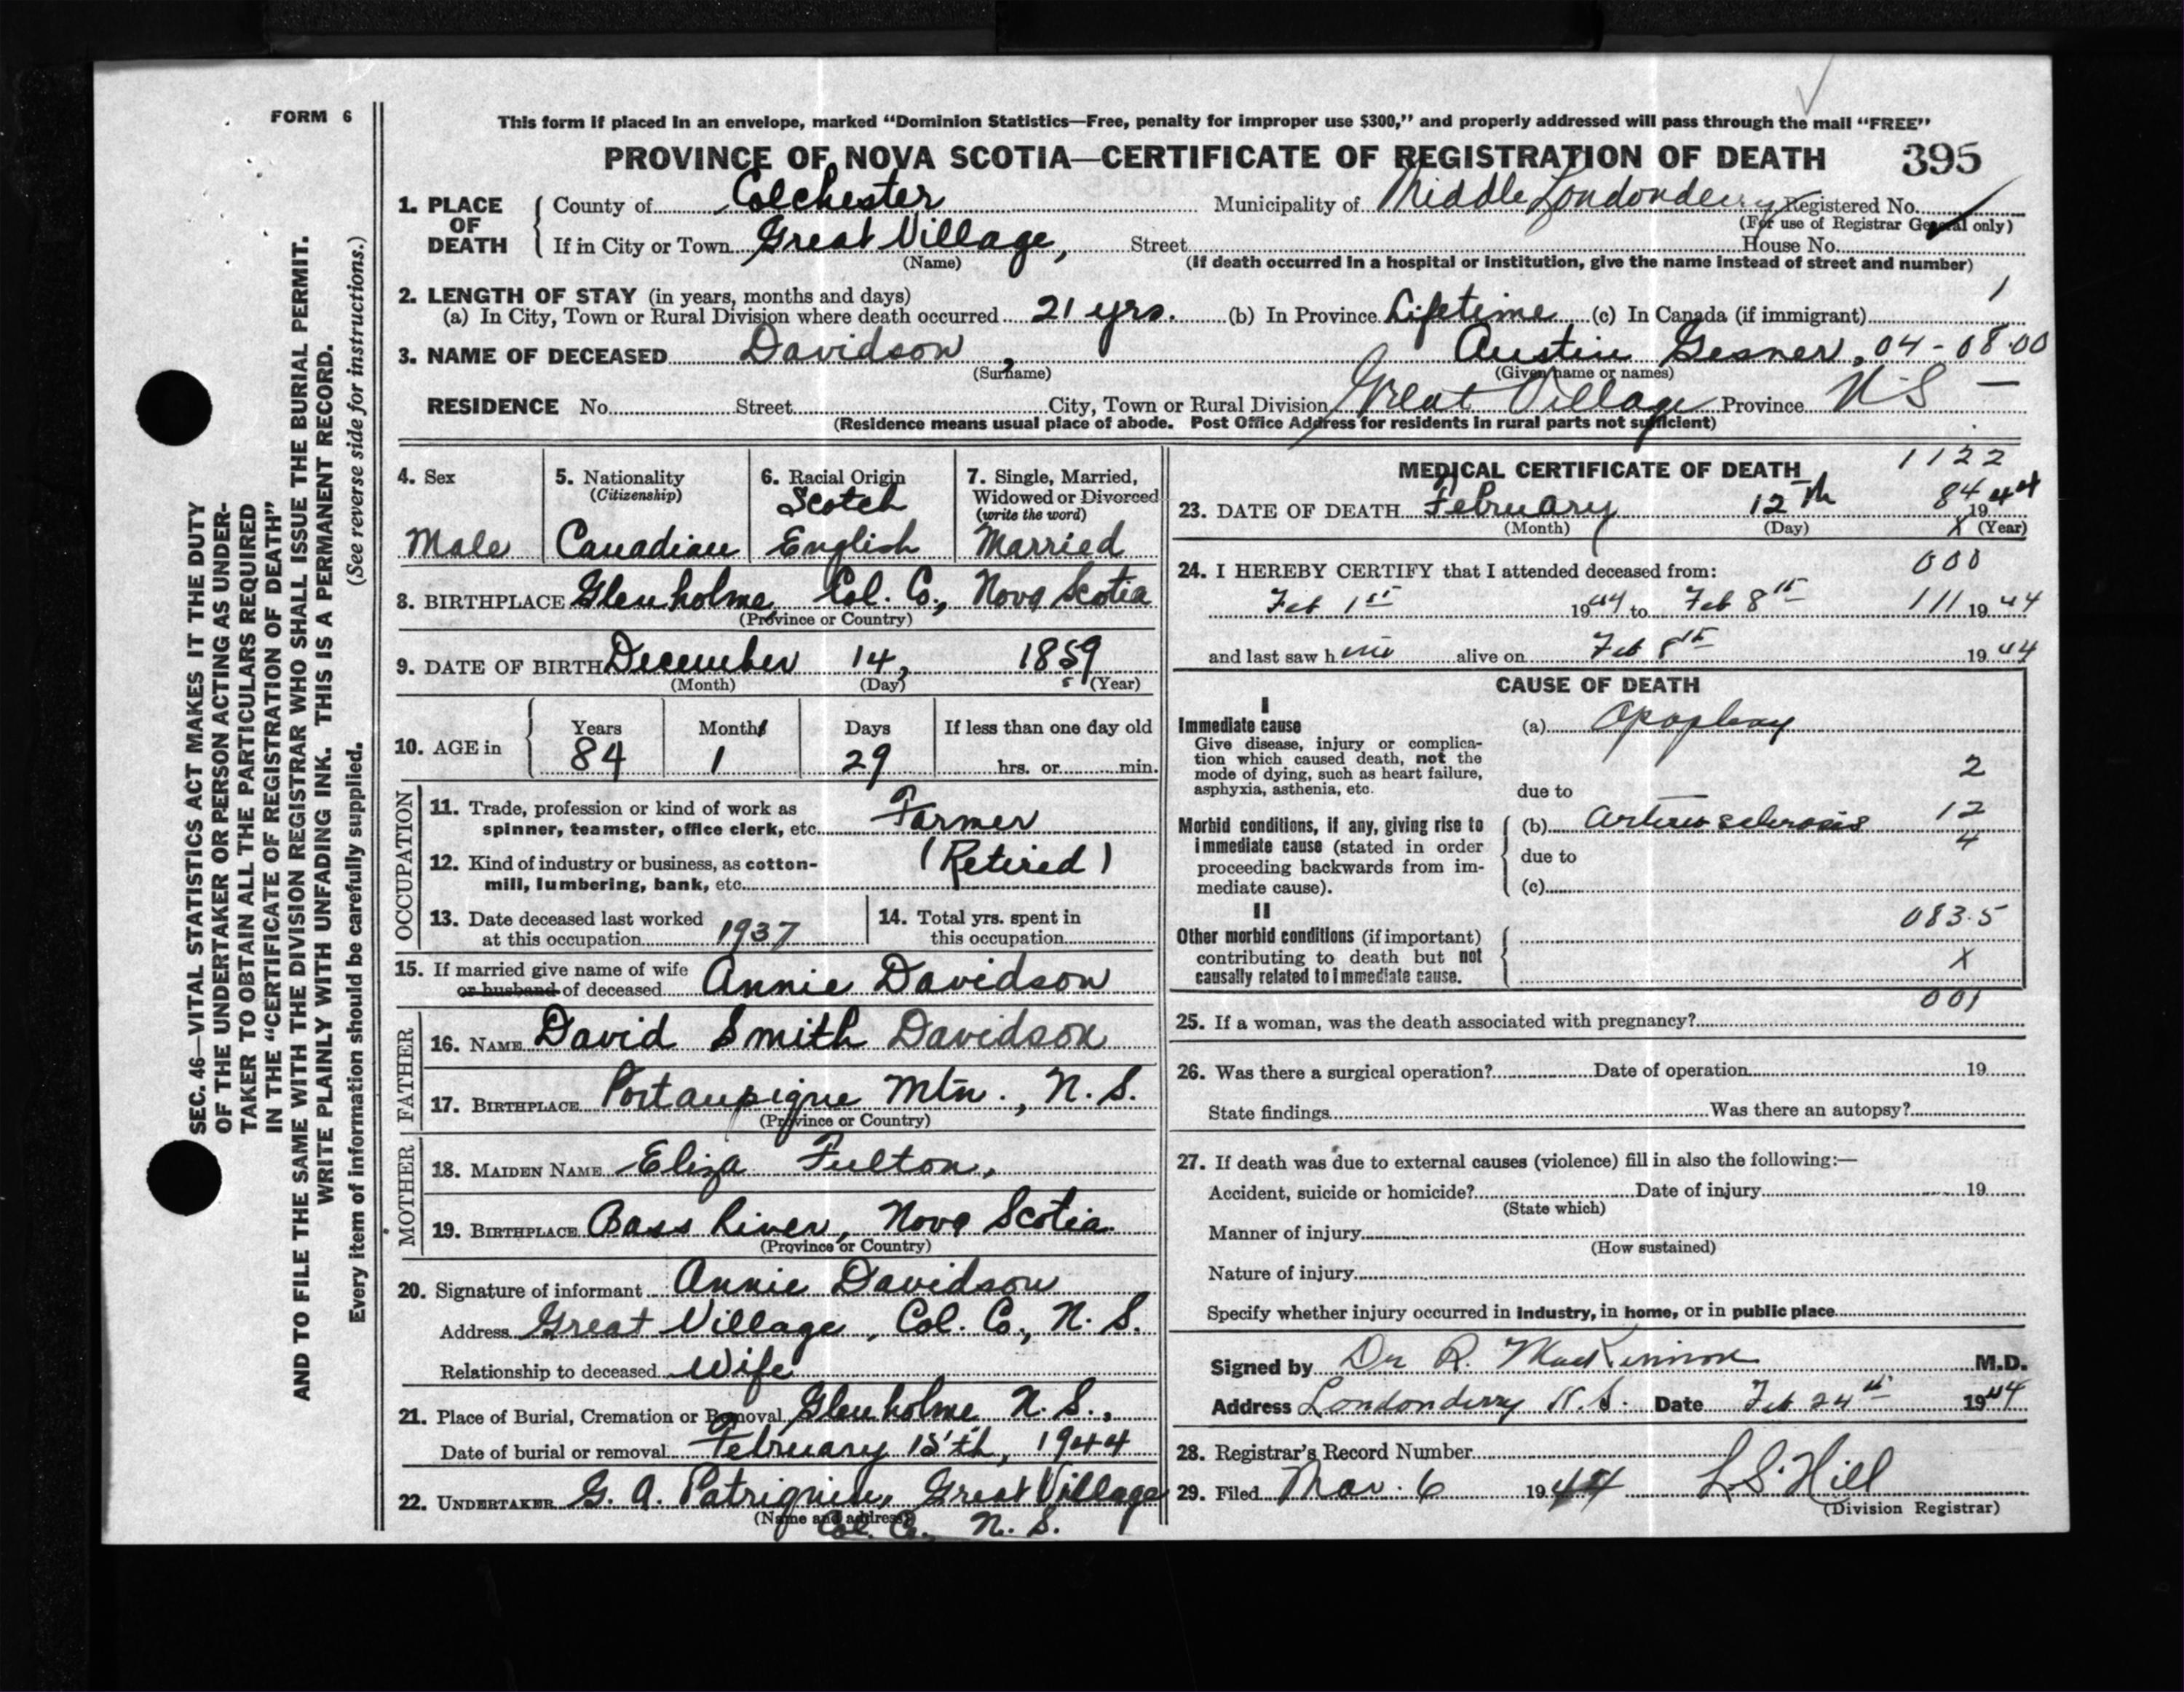 FORM 6
This form if placed in an envelope, marked “Dominion Statistics—Free, penalty for improper use $300,” and properly addressed will pass through the mail “FREE”
PROVINCE OF NOVA SCOTIA—CERTIFICATE OF REGISTRATION OF DEATH 395
1. PLACE OF DEATH County of Colchester Municipality of Middle Londonderry Registered No.
(For use of Registrar General only)
If in City or Town Great Village, Street House No.
(Name) (If death occurred in a hospital or institution, give the name instead of street and number)
2. LENGTH OF STAY (in years, months and days) 1
(a) In City, Town or Rural Division where death occurred 21 yrs. (b) In Province Lifetime (c) In Canada (if immigrant)
3. NAME OF DECEASED Davidson, Austin Gesner, 04-08.00
(Surname) (Given name or names)
RESIDENCE No. Street City, Town or Rural Division Great Village Province N S —
(Residence means usual place of abode. Post Office Address for residents in rural parts not sufficient)
4. Sex Male
5. Nationality (Citizenship) Canadian
6. Racial Origin Scotch English
7. Single, Married, Widowed or Divorced (write the word) Married
8. BIRTHPLACE Glenholme, Col. Co., Nova Scotia
(Province or Country)
9. DATE OF BIRTH December 14, 1859
(Month) (Day) (Year)
10. AGE in Years 84 Months 1 Days 29 If less than one day old hrs. or min.
OCCUPATION
11. Trade, profession or kind of work as spinner, teamster, office clerk, etc. Farmer
12. Kind of industry or business, as cotton-mill, lumbering, bank, etc. (Retired)
13. Date deceased last worked at this occupation 1937
14. Total yrs. spent in this occupation
15. If married give name of wife or husband of deceased Annie Davidson
FATHER
16. NAME David Smith Davidson
17. BIRTHPLACE Portaupique Mtn., N.S.
(Province or Country)
MOTHER
18. MAIDEN NAME Eliza Fulton,
19. BIRTHPLACE Bass River, Nova Scotia
(Province or Country)
20. Signature of informant Annie Davidson
Address Great Village, Col. Co., N. S.
Relationship to deceased Wife
21. Place of Burial, Cremation or Removal Glenholme N. S.,
Date of burial or removal February 15'th, 1944
22. UNDERTAKER G. A. Patriquin, Great Village
(Name and address) Col. Co. N. S.
MEDICAL CERTIFICATE OF DEATH 1122
23. DATE OF DEATH February 12th 84 1944
(Month) (Day) X (Year)
24. I HEREBY CERTIFY that I attended deceased from: 000
Feb 1st 1944 to Feb 8th 111 1944
and last saw h im alive on Feb 8th 1944
CAUSE OF DEATH
I
Immediate cause (a) Apoplexy
Give disease, injury or complication which caused death, not the mode of dying, such as heart failure, asphyxia, asthenia, etc. 2
due to
Morbid conditions, if any, giving rise to immediate cause (stated in order proceeding backwards from immediate cause). (b) arterio sclerosis 12
4
due to
(c)
II
083.5
Other morbid conditions (if important) contributing to death but not causally related to immediate cause. X
001
25. If a woman, was the death associated with pregnancy?
26. Was there a surgical operation? Date of operation 19
State findings Was there an autopsy?
27. If death was due to external causes (violence) fill in also the following:—
Accident, suicide or homicide? Date of injury 19
(State which)
Manner of injury
(How sustained)
Nature of injury
Specify whether injury occurred in industry, in home, or in public place
Signed by Dr R. MacKinnon M.D.
Address Londonderry N.S. Date Feb 24th 1944
28. Registrar's Record Number
29. Filed Mar. 6 1944 L S Hill
(Division Registrar)
SEC. 46—VITAL STATISTICS ACT MAKES IT THE DUTY
OF THE UNDERTAKER OR PERSON ACTING AS UNDER-
TAKER TO OBTAIN ALL THE PARTICULARS REQUIRED
IN THE “CERTIFICATE OF REGISTRATION OF DEATH”
AND TO FILE THE SAME WITH THE DIVISION REGISTRAR WHO SHALL ISSUE THE BURIAL PERMIT.
WRITE PLAINLY WITH UNFADING INK. THIS IS A PERMANENT RECORD.
Every item of information should be carefully supplied. (See reverse side for instructions.)